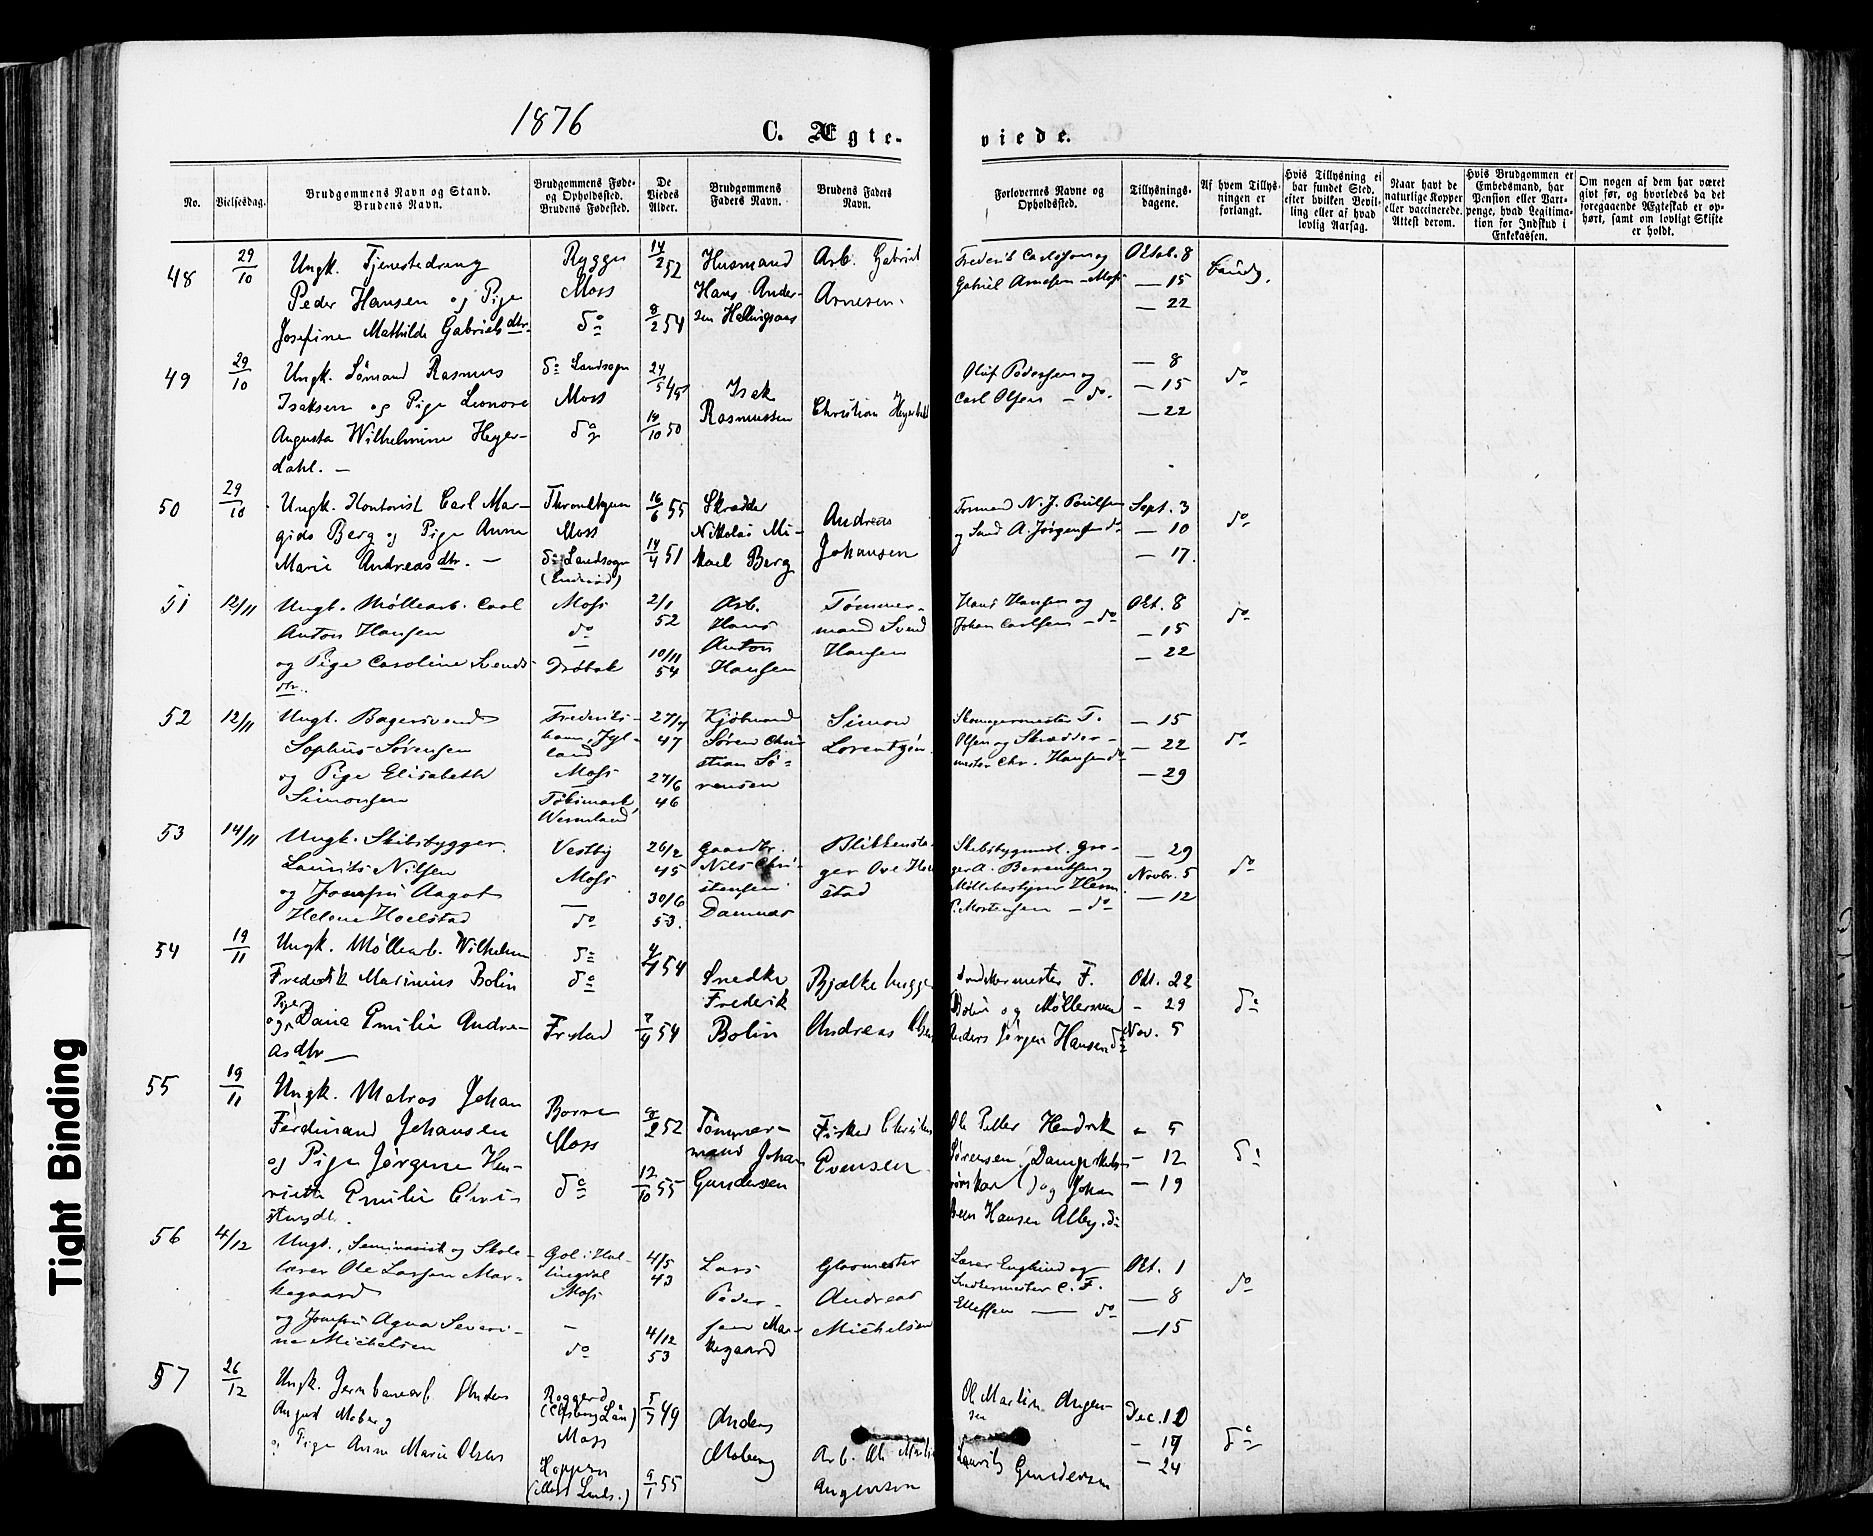 1876
C. Ægte-
viede.
No.
Vielsesdag.
Brudgommens Navn og Stand.
Brudens Navn.
Brudgommens Føde-
og Opholdssted.
Brudens Fødested.
De
Viedes
Alder.
Brudgommens
Faders Navn.
Brudens Faders
Navn.
Forlovernes Navne og
Opholdssted.
Tillysnings-
dagene.
Af hvem Tillys-
ningen er
forlangt.
Hvis Tillysning ei
har fundet Sted,
efter hvilken Bevil-
ling eller af hvad
lovlig Aarsag.
Naar havt de
naturlige Kopper
eller vaccinerede.
Attest derom.
Hvis Brudgommen er
Embedsmand, har
Pension eller Vart-
penge, hvad Legitima-
tion for Indskud i
Enkekassen.
Om nogen af dem har været
givt før, og hvorledes da det
foregaaende Ægteskab er op-
hørt, samt om lovligt Skifte
er holdt.
48
29/10
Ungk. Tjenestedreng
Peder Hansen og Pige
Josefine Mathilde Gabrielsdtr.
Rygge
Moss
do
14/2 52
8/2 54
Husmand
Hans Ander-
sen Hellingsaas
Arb. Gabriel
Arnesen.
Frederik Carlsson og
Gabriel Arnesen - Moss
Oktob. 8
— 15
— 22
49
29/10
Ungk. Sømand Rasmus
Isaksen og Pige Leonore
Augusta Wilhelmine Heyer-
dahl. —
do Landsogn
Moss
do
24/5 45
14/10 50
Isak
Rasmussen
Christian Heyerdahl
Oluf Pedersen og
Carl Olsen - do.
— 8
— 15
— 22
do
50
29/10
Ungk. Kontorist Carl Mar-
gido Berg og Pige Anne
Marie Andreasdtr. —
Moss
do Landsogn
16/6 55
14/4 51
Skrædder
Nikolai Mi-
kael Berg
Andreas
Johansen
Formand N. J. Poulsen
og A. Jørgensen do
Sept. 3
— 10
— 17.
do
51
12/11
Ungk. Møllearb. Carl
Anton Hansen
og Pige Caroline Svends-
dtr.
Moss
do
Drøbak
2/1
52
10/11
54
Arb.
Hans
Anton
Hansen
Tømmer-
mand Svend
Hansen
Hans Hansen og
Johan Carlsen - do
Okt. 8
— 15
— 22
do
52
12/11
Ungk. Bagersvend
Sophus Sørensen
og Pige Elisabeth
Simonsen
Frederiks-
havn, Jyl-
land
Moss
Wermland
27/4
47
27/6
46
Kjøbmand
Søren Chri-
stian Sø-
rensen
Simon
Lorentzen
Olsen og Skrædder-
mester Chr. Hansen do
— 15
— 22
— 29
do
53
14/11
Ungk. Skibsbygger
Laurits Nilsen
og Jomfru Aagot
Helene Hoelstad
Vestby
Moss
—
do
26/2
45
30/6
53.
Gaardbr.
Nils Chri-
stensen
Damnæs
Blikkensla-
ger Ove Hoel-
stad
Skibsbygmst. Gre-
ger A. Berentsen og
Møllebestyrer Herm.
P. Mortensen - do
— 29
Novbr. 5
— 12
do
54
19/11
Ungk. Møllearb. Wilhelm
Frederik Marinius Bolin
Pige
og Daniæ Emilie Andre-
asdtr —
do
do
Frstad
54
54
Snedker
Frederik
Bolin
Bjælkehugger
Andreas
Snedkermester F.
Bolin og Møllersvend
Anders Jørgen Hansen do
Okt. 22
- 29
Nov. 5
do
55
19/11
Ungk. Matros Johan
Ferdinand Johansen
og Pige Jørgine Hen-
riette Emilie Chri-
stensdtr.
Borre
Moss
do
52
12/10 55
Tømmer-
mand Johan
Gundersen
Fisker Christen
Evensen
Ole Petter Hendrik
Sørensen (Dampskibs-
) og Johan
Hansen Alby. do
- 5
- 12
- 19
do
56
4/12
Ungk., Seminarist og Skole-
lærer Ole Larsen Mar-
kegaard
og Jomfru Agna Severi-
ne Michelsen
Gol i Hal-
lingdal
Moss
—
do
4/5
43
4/12
53
Lars
Peder-
sen Mar-
kegaard
Glarmester
Andreas
Michelsen
Lærer Englund og
Snedkermester C. F.
Elleffsen — do
Okt. 1
— 8
— 15
do
57
26/12
Ungk. Jernbanearb. Anders
August Moberg
og Pige Anne Marie Olsen
Moss
Hoppern
(Moss Lands.)
49
9/1 55
Anders
Moberg
Arb. Ole Martin
Angensen
Ole Martin Angen-
sen
Laurits Gundersen
Dec. 10
- 17
- 24
do
Tight Binding